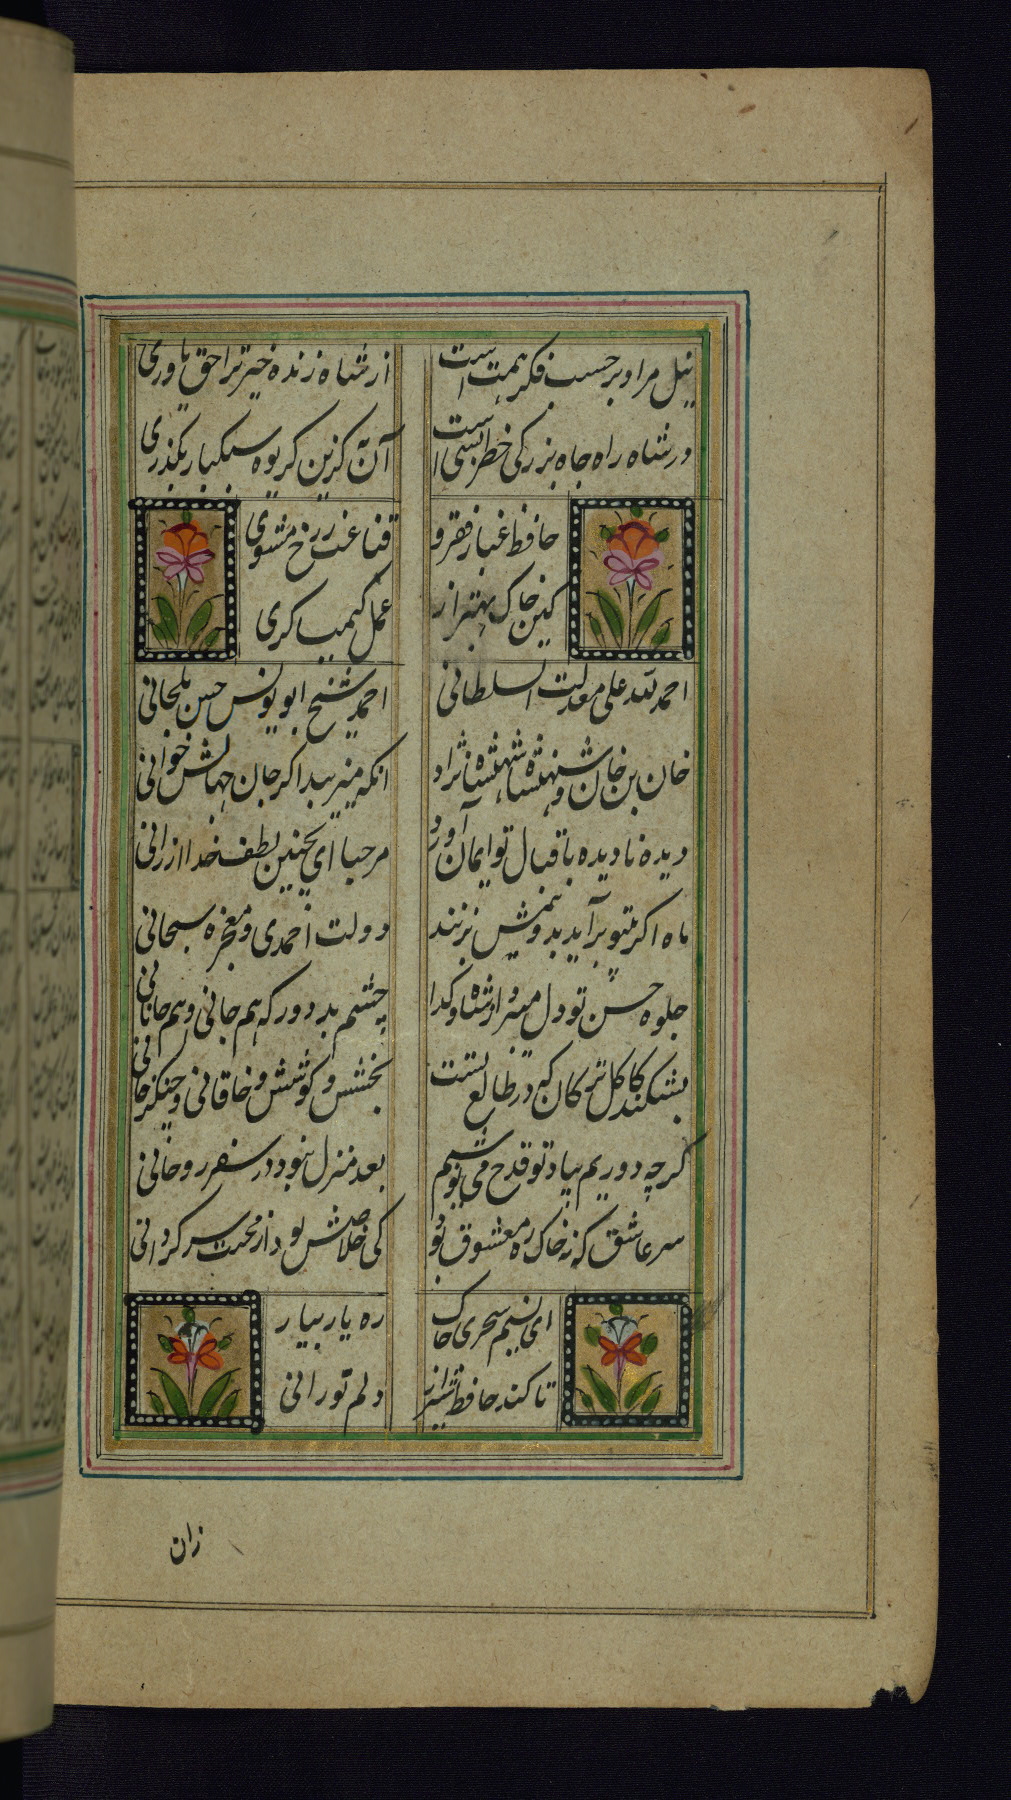 نیل مراد بر حسب فکر همت است
از شاه زنده خیر ترا حق یاوری
در شاه راه جاه بزرگی خطر بسی است
آن به کزین کریوه سبکبار بگذری
حافظ غبار فقر و
قناعت ز رخ مشوی
کین خاک بهتر از
عمل کیمیاگری
احمد لله علی معدلت السلطانی
احمد شیخ ابو یونس حسن یلخانی
خان بن خان و شهنشاه شهنشاه نژاد
انکه میزیبد اگر جان جهانش خوانی
دیده نادیده باقبال تو ایمان آورد
مرحبا ای بچنین لطف خدا ارزانی
ماه اگر بیتو برآید بدو نیمش بزنند
دولت احمدی و معجزه سبحانی
جلوه حسن تو دل میبرد از شاه و کدا
چشم بد دور که هم جانی و هم جانانی
بشکند کاکل ترکان که در طالع تست
بخشش و کوشش خاقانی و چنگیزخانی
گرچه دوریم بیاد تو قدح می نوشیم
بعد منزل نبود در سفر روحانی
سر عاشق که نه خاک ره معشوق بود
کی خلاصش بود از محنت سرگردانی
ای نسیم سحری خاک
ره یار بیار
تا کند حافظ ازو
دلم نورانی
زان